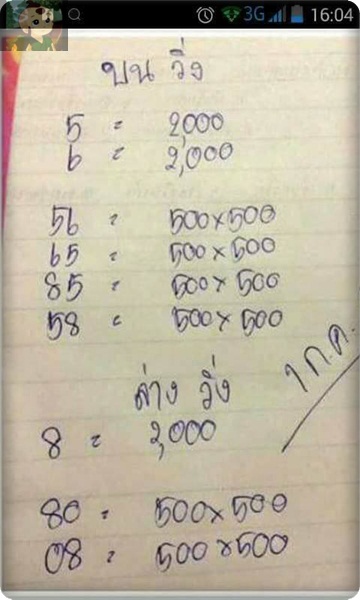 3G 16:04
บน วิ่ง
5 = 2,000
6 = 2,000
56 = 500×500
65 = 500×500
85 = 500×500
58 = 500×500
1 ก.ค.
ล่าง วิ่ง
8 = 2,000
80 = 500×500
08 = 500×500